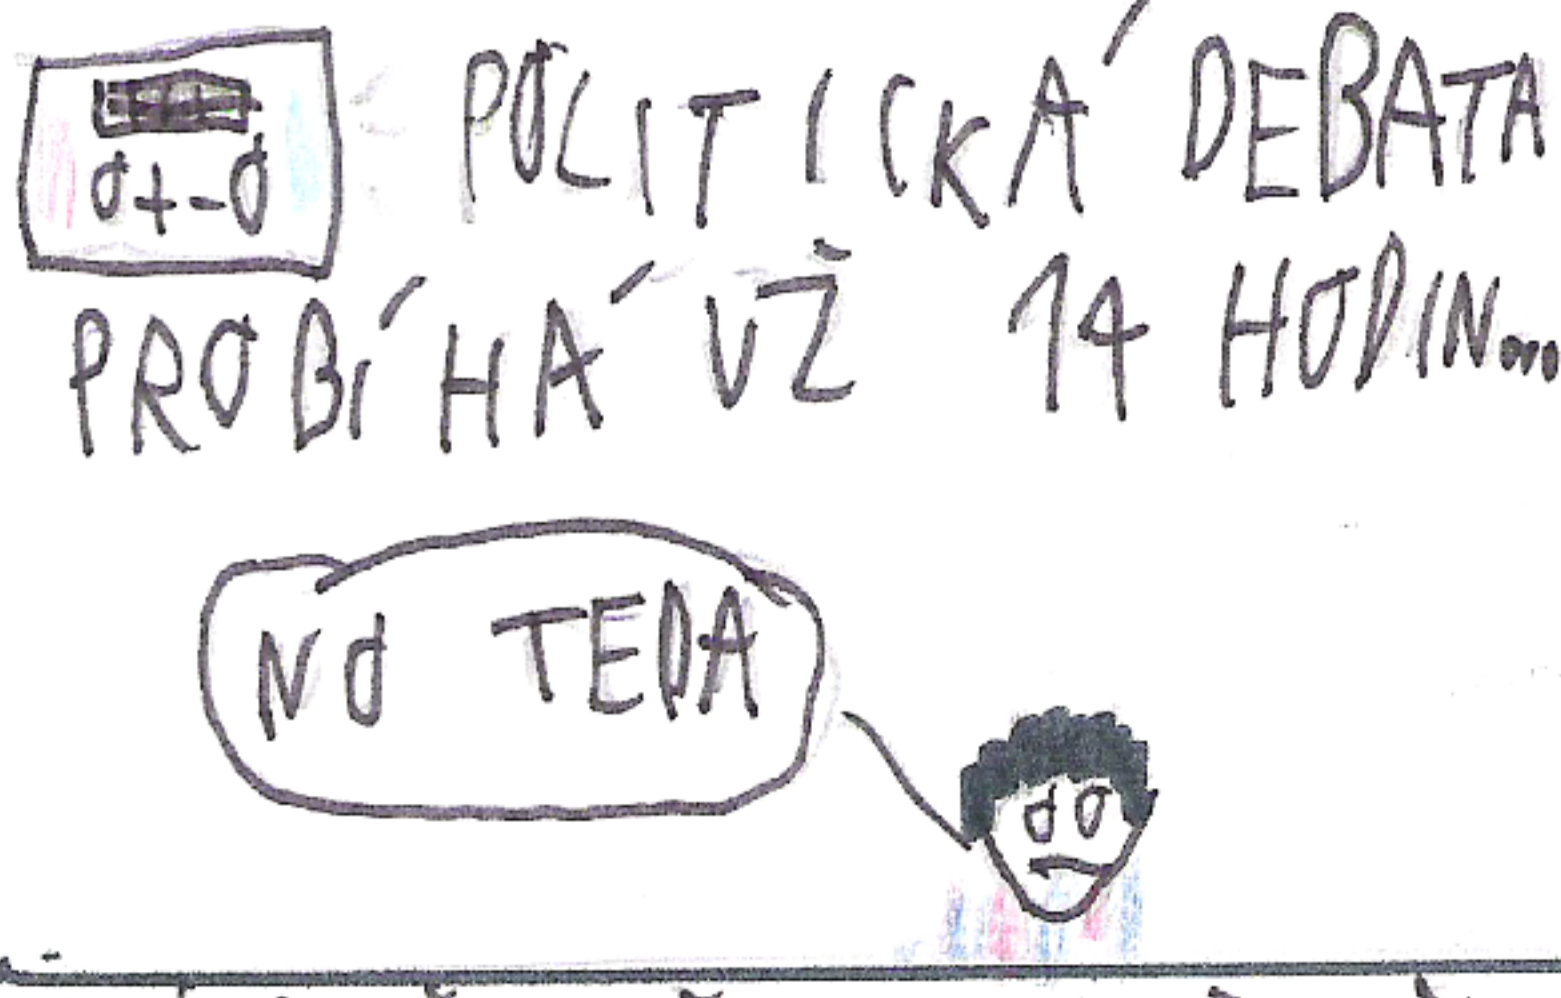 POLITICKÁ DEBATA
PROBÍHÁ UŽ 14 HODIN...
NO TEDA